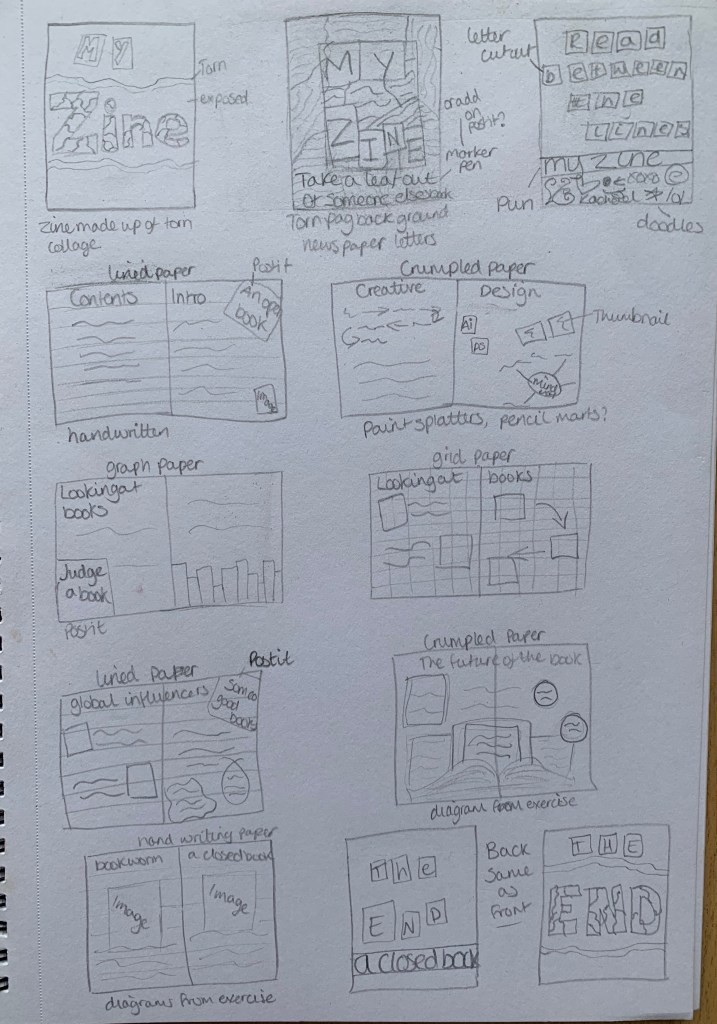 MY
Zine
Torn
exposed
Zine made up of torn
collage
MY
ZINE
Take a leaf out
Of someone elses book
or add
on
Postit?
marker
pen
Torn pag background
newspaper letters
letter
cutout
Read
between
the
lines
my zine
Pun
doodles
lined paper
Postit
Contents
Intro
An open
book
Image
handwritten
Crumpled paper
Creative
Design
Ai
PS
Thumbnail
mind
map
Paint splatters, pencil marks?
graph paper
Looking at
books
Judge
a book
Postit
grid paper
Looking at
books
lined paper
Postit
global influencers
good
books
Crumpled Paper
The future of the book
diagram from exercise
hand writing paper
bookworm
a closed book
Image
Image
diagrams from exercise
The
END
a closed book
Back
same
as
front
THE
END